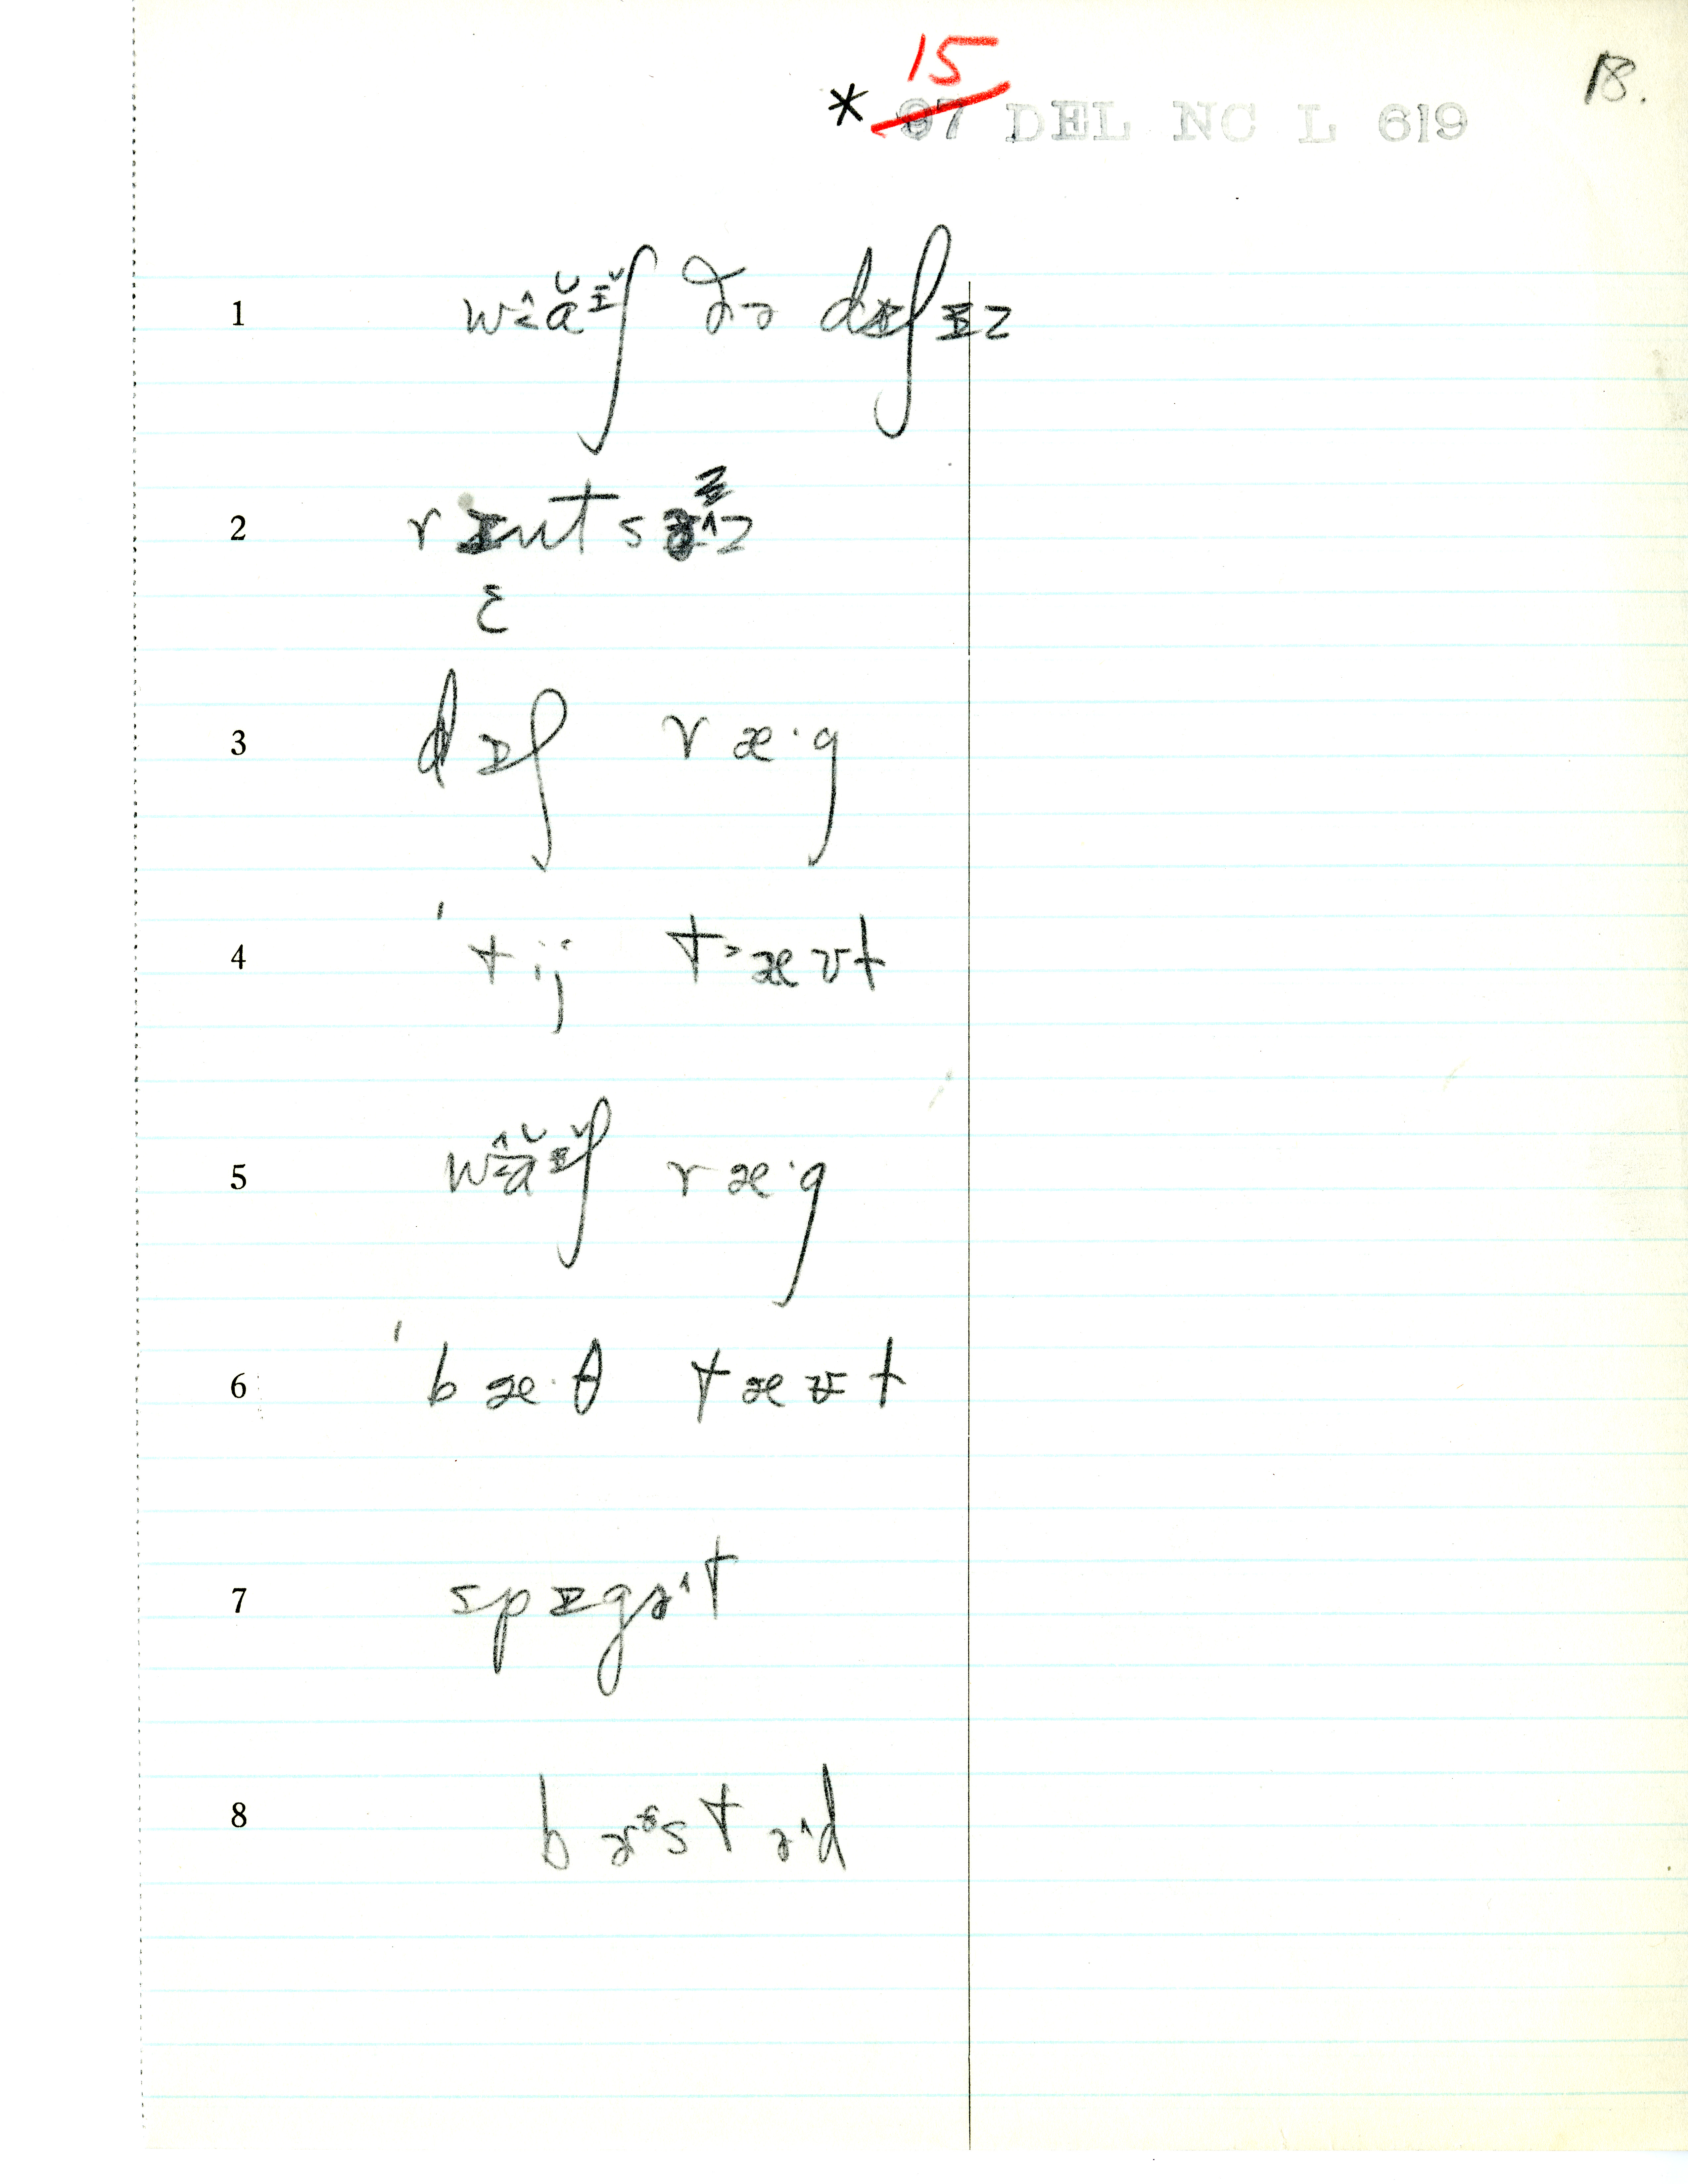 15
18.
* 97 DEL NC L 619
1 wɑ̆ɪ̆ʃ ðə dɪʃɪz
2 rɪnts
ɛ
3 dɪʃ ræ·g
4 'tij t>æʊt
5 wɑ̆ɪ̆ʃ ræ·g
6 'bæ·θ tæʊt
7 spɪgə^t
8 b s t ə^d